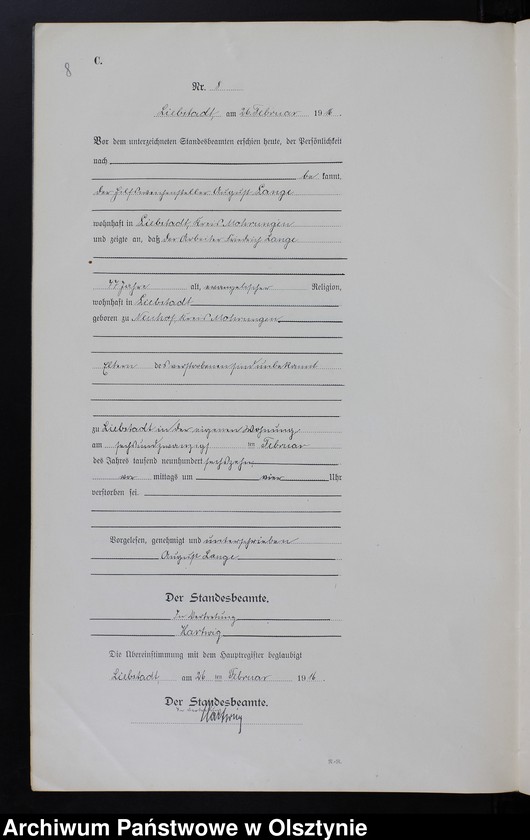 8
C.
Nr. 8
Liebstadt, am 26 Februar 1916.
Vor dem unterzeichneten Standesbeamten erschien heute, der Persönlichkeit
nach
be kannt,
der Hilfsweichensteller August Lange
wohnhaft in Liebstadt, Kreis Mohrungen
und zeigte an, daß der Arbeiter Friedrich Lange
77 Jahre alt, evangelischer Religion,
wohnhaft in Liebstadt
geboren zu Neuhof, Kreis Mohrungen
Eltern des verstorbenen sind unbekannt
zu Liebstadt in der eigenen Wohnung
am sechsundzwanzigsten Februar
des Jahres tausend neunhundert sechszehn
vor mittags um vier Uhr
verstorben sei.
Vorgelesen, genehmigt und unterschrieben
August Lange
Der Standesbeamte.
In Vertretung
Hartwig
Die Übereinstimmung mit dem Hauptregister beglaubigt
Liebstadt, am 26 ten Februar 1916.
Der Standesbeamte.
In Vertretung
Hartwig
Archiwum Państwowe w Olsztynie